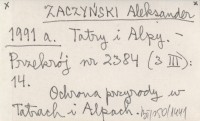 ZACZYŃSKI Aleksander
1991 a. Tatry i Alpy. –
Przekrój nr 2384 (3 III):
14.
Ochrona przyrody w
Tatrach i Alpach.